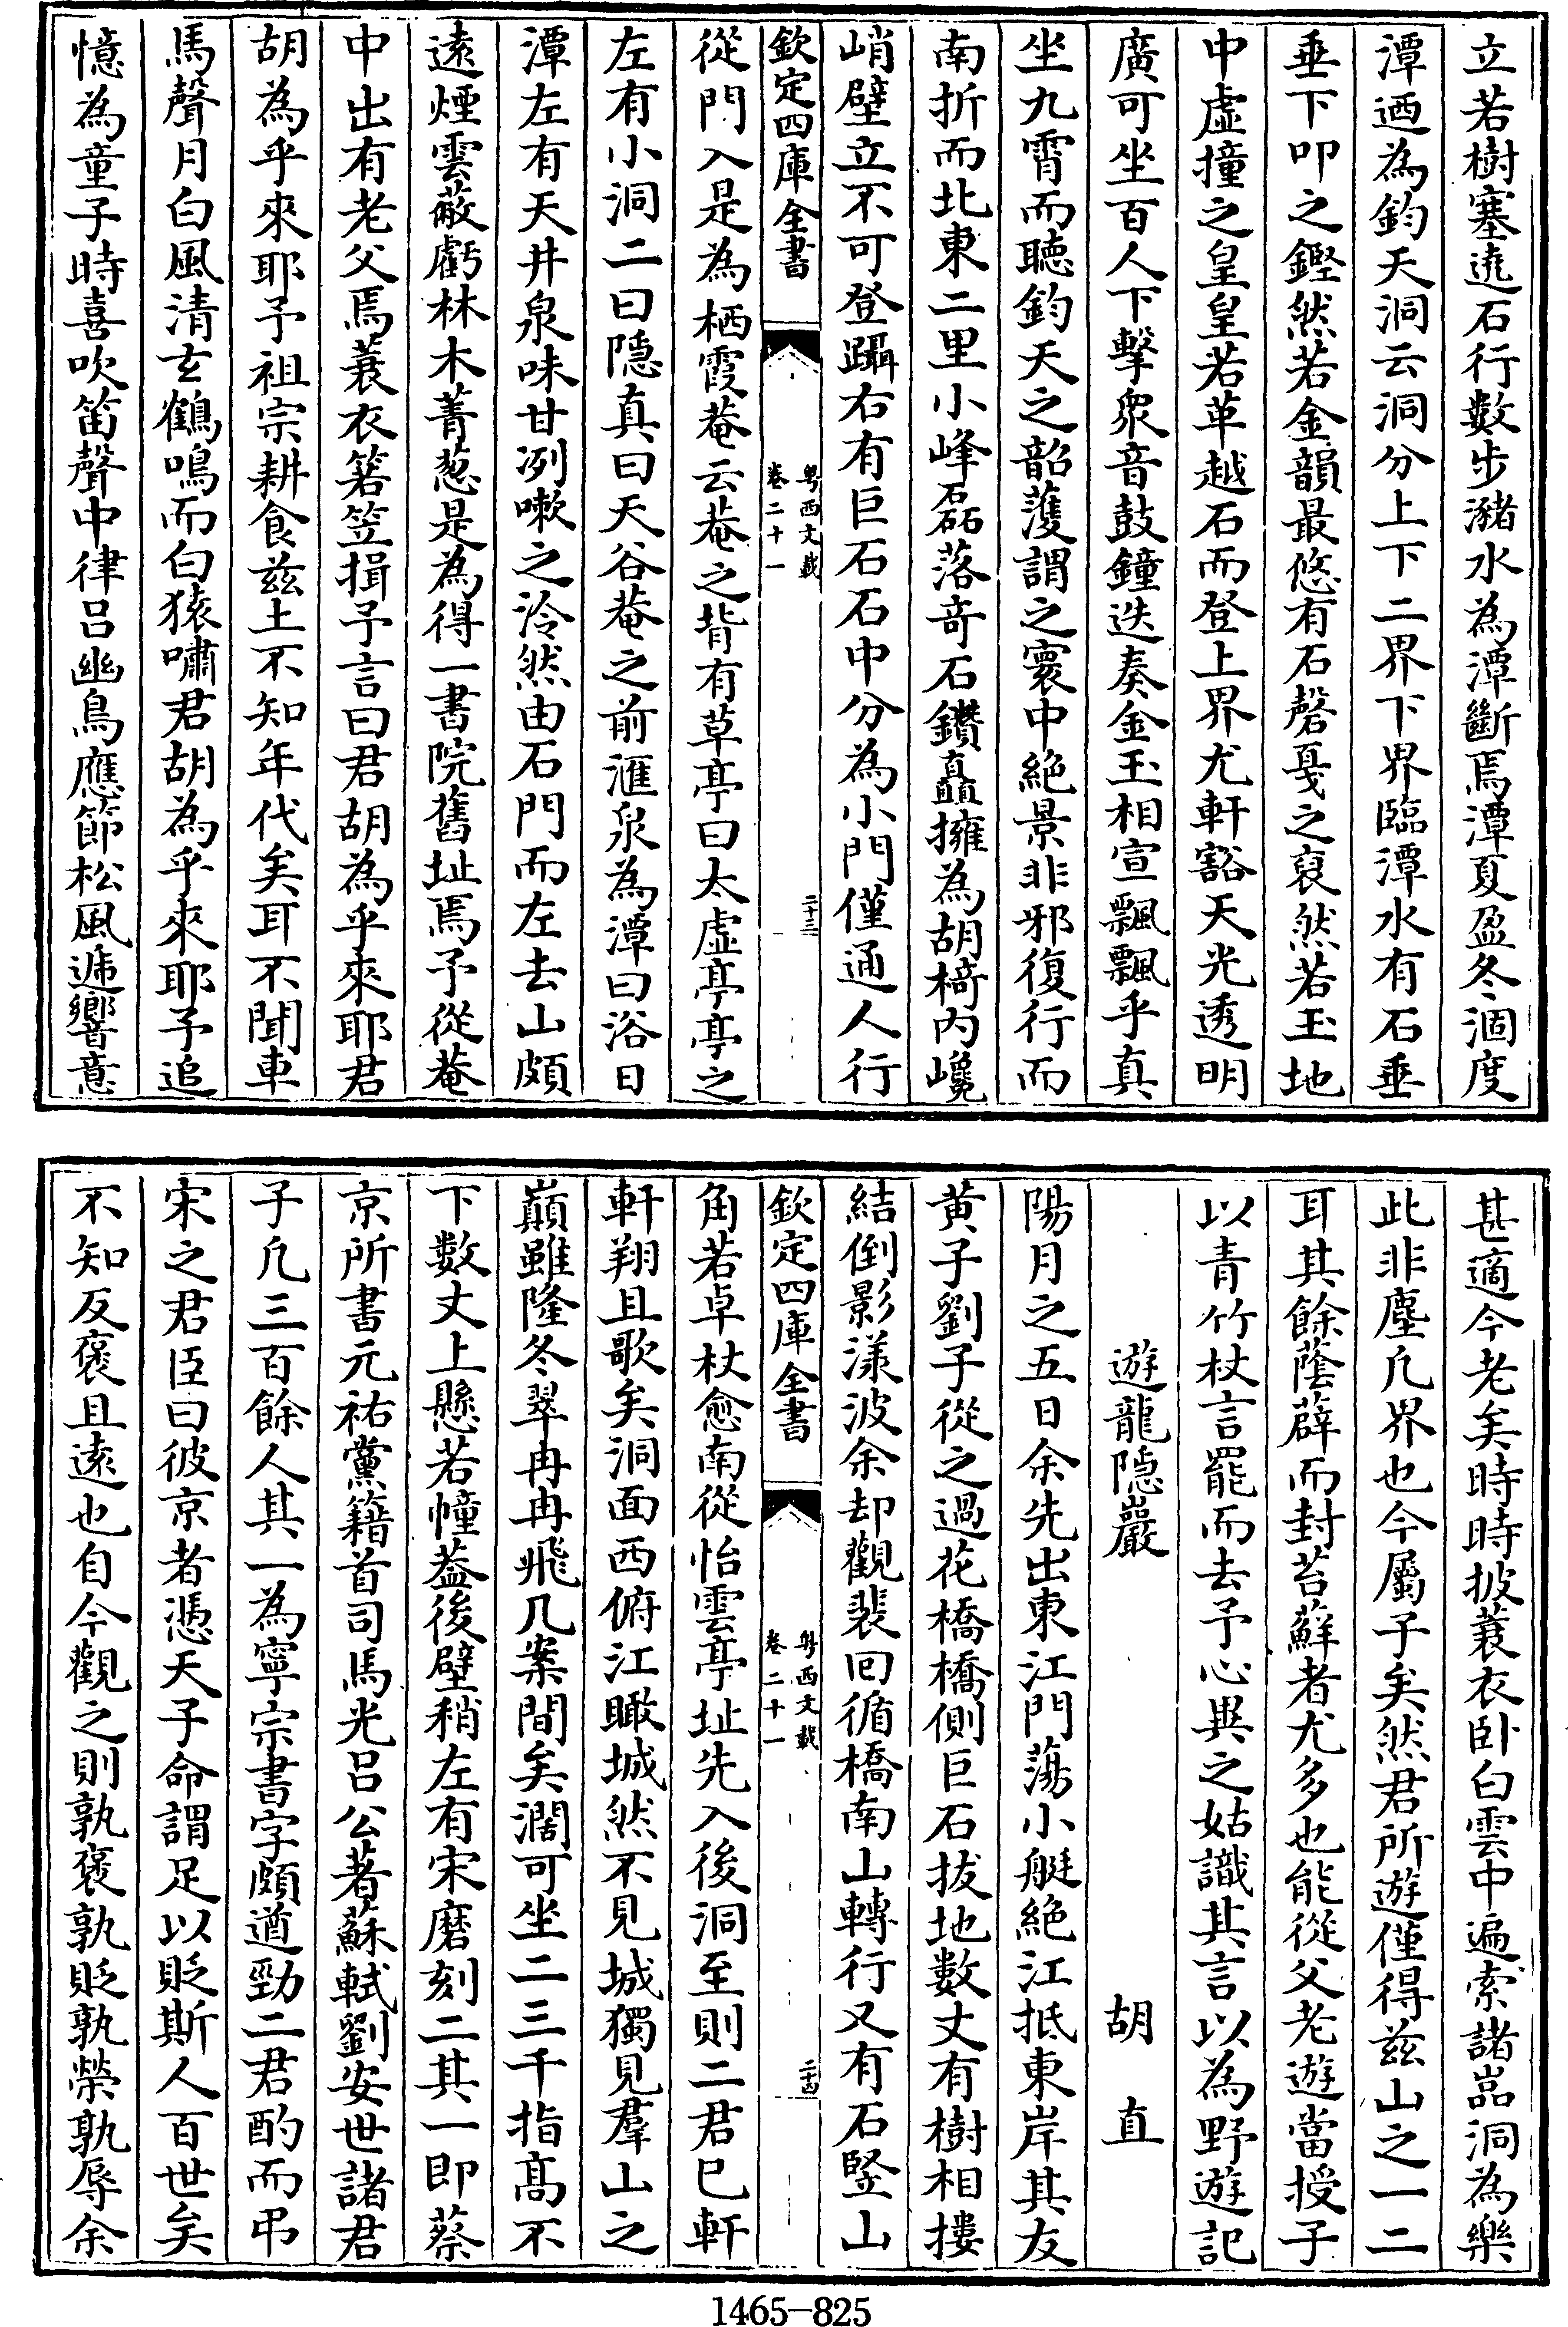 立若樹塞遶石行數步瀦水為潭斷焉潭夏盈冬涸度
潭迺為鈞天洞云洞分上下二界下界臨潭水有石垂
垂下叩之鏗然若金韻最悠有石磬戛之裒然若玉地
中虛撞之皇皇若革越石而登上界尤軒豁天光透明
廣可坐百人下擊衆音鼓鐘迭奏金玉相宣飄飄乎真
坐九霄而聽鈞天之韶頀謂之寰中絶景非邪復行而
南折而北東二里小峰磊落竒石鑽矗擁為胡椅内巉
峭壁立不可登躡右有巨石石中分為小門僅通人行
欽定四庫全書
粤西文載
卷二十一
二十三
從門入是為栖霞菴云菴之背有草亭曰太虛亭亭之
左有小洞二曰隱真曰天谷菴之前滙泉為潭曰浴日
潭左有天井泉味甘冽嗽之泠然由石門而左去山頗
遠煙雲蔽虧林木菁葱是為得一書院舊址焉予從菴
中出有老父焉蓑衣箬笠揖予言曰君胡為乎來耶君
胡為乎來耶予祖宗耕食兹土不知年代矣耳不聞車
馬聲月白風清玄鶴鳴而白猿嘯君胡為乎來耶予追
憶為童子時喜吹笛聲中律吕幽鳥應節松風遞響意
甚適今老矣時時披蓑衣卧白雲中遍索諸嵓洞為樂
此非塵凡界也今屬子矣然君所遊僅得兹山之一二
耳其餘蔭薜而封苔蘚者尤多也能從父老遊當授子
以青竹杖言罷而去予心異之姑識其言以為野遊記
遊龍隠巖
胡直
陽月之五日余先出東江門蕩小艇絶江抵東岸其友
黄子劉子從之過花橋橋側巨石拔地數丈有樹相摟
結倒影漾波余却觀裴回循橋南山轉行又有石竪山
欽定四庫全書
粤西文載
卷二十一
二十四
角若卓杖愈南從怡雲亭址先入後洞至則二君已軒
軒翔且歌矣洞面西俯江瞰城然不見城獨見羣山之
巔雖隆冬翠冉冉飛几案間矣濶可坐二三千指髙不
下數丈上懸若幢葢後壁稍左有宋磨刻二其一即蔡
京所書元祐黨籍首司馬光吕公著蘇軾劉安世諸君
子凡三百餘人其一為寧宗書字頗遒勁二君酌而弔
宋之君臣曰彼京者憑天子命謂足以貶斯人百世矣
不知反褒且遠也自今觀之則孰褒孰貶孰榮孰辱余
1465-825